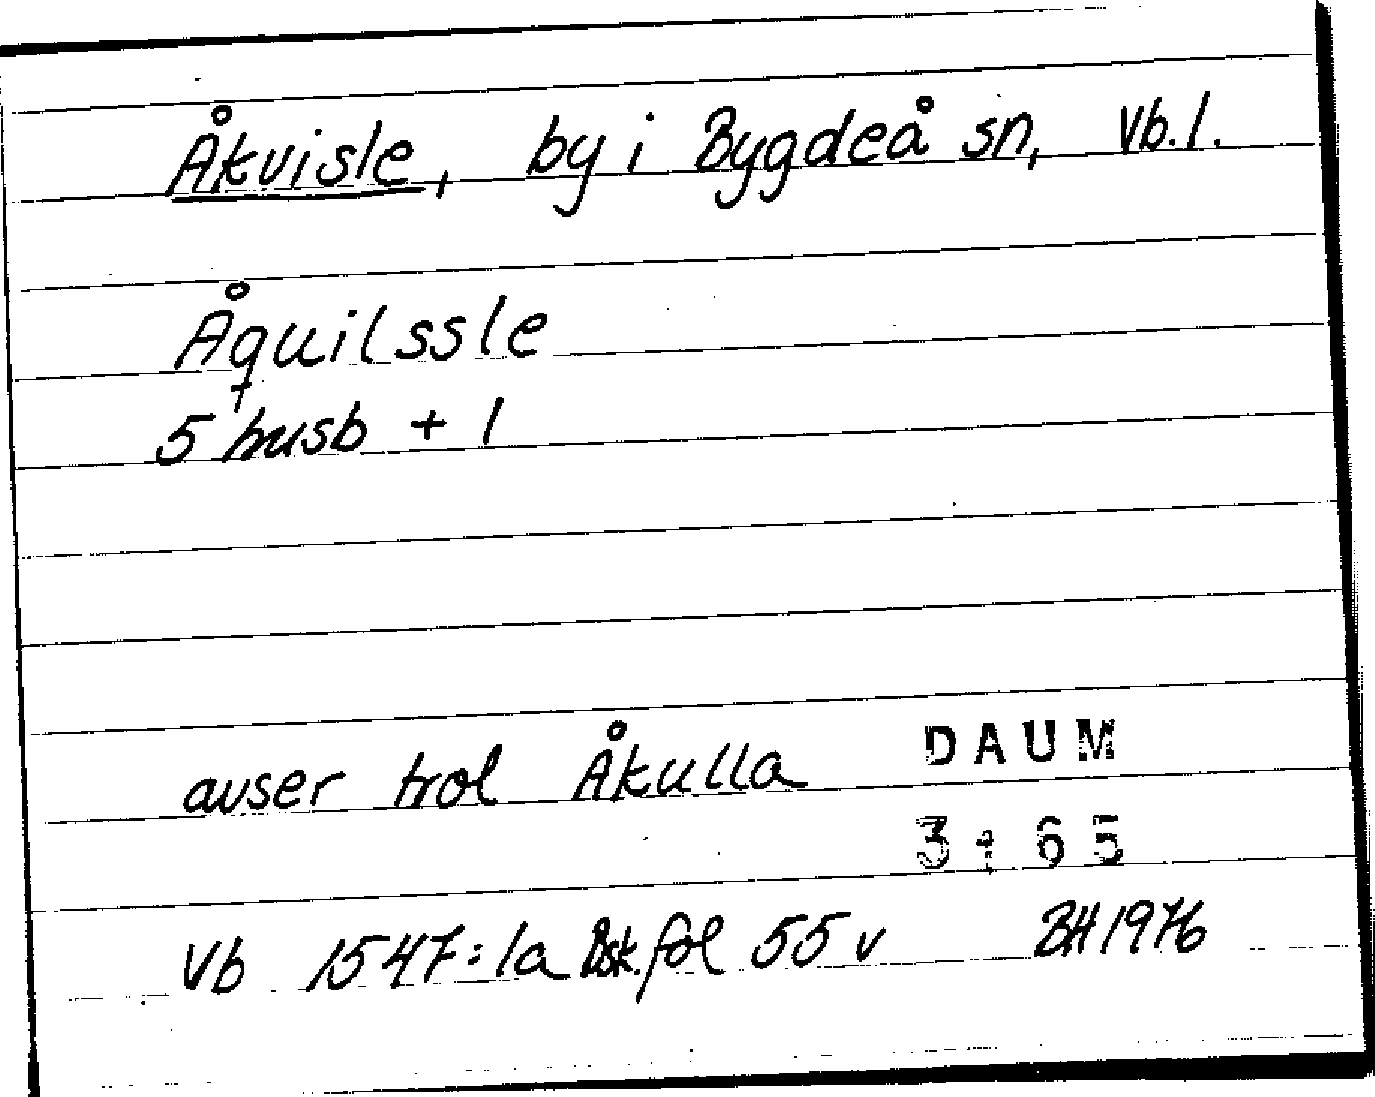 Åkvisle, by i Bygdeå sn, Vb. l.
Åquilssle
5 husb + 1
avser trol Åkulla
DAUM
3:65
Vb 1547:1a Bsk. fol 55 v BH 1976